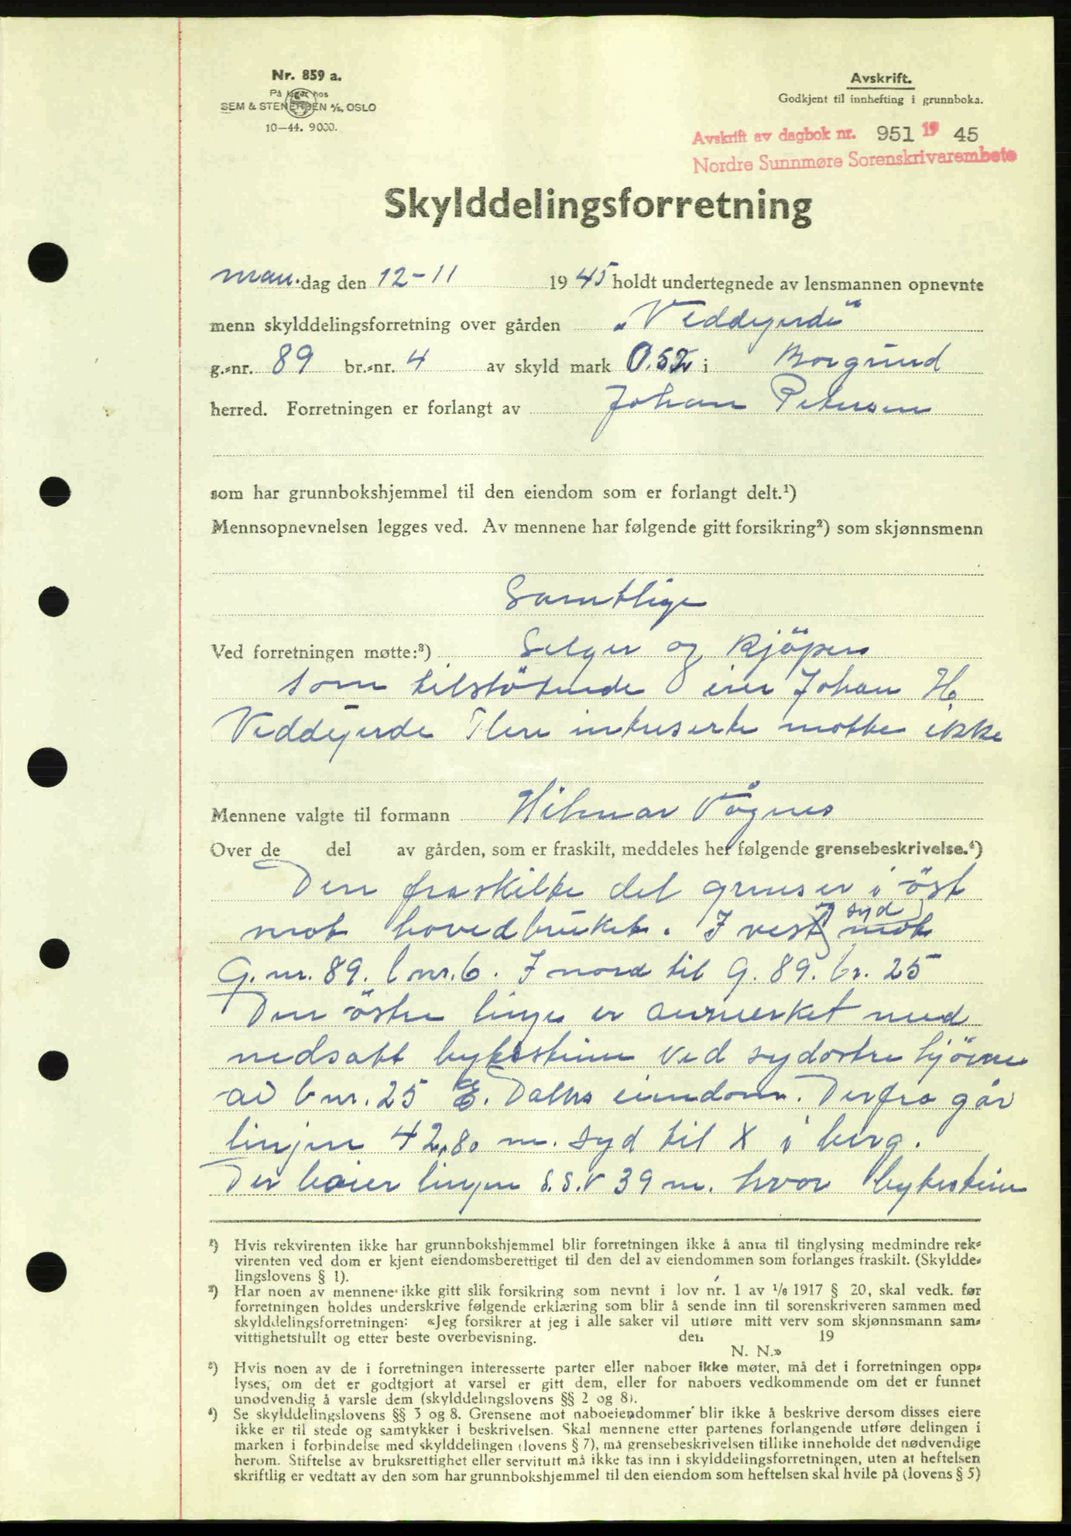 Nr. 859 a.
På lager hos
SEM & STENERSEN A/S, OSLO
10-44. 9000.
Avskrift.
Godkjent til innhefting i grunnboka.
Avskrift av dagbok nr. 951 19 45
Nordre Sunnmøre Sorenskrivarembete
Skylddelingsforretning
man. dag den 12-11 1945 holdt undertegnede av lensmannen opnevnte
menn skylddelingsforretning over gården „Veddegjerde"
g.-nr. 89 br.-nr. 4 av skyld mark 0.52 i Borgund
herred. Forretningen er forlangt av Johan Petersen
som har grunnbokshjemmel til den eiendom som er forlangt delt.¹)
Mennsopnevnelsen legges ved. Av mennene har følgende gitt forsikring²) som skjønnsmenn
Samtlige
Ved forretningen møtte:³) Selger og kjöper
som tilstötende eier Johan H
Veddegjerde Flere intreserte møtte ikke
Mennene valgte til formann Hilmar Vågnes
Over de del av gården, som er fraskilt, meddeles her følgende grensebeskrivelse.⁴)
Den fraskilte del grenser i öst
mot hovedbruket. I vest og syd mot
G.nr. 89. bnr. 6. I nord til G. 89. br. 25
Den östre linje er avmerket med
nedsatt bytestein ved sydostre hjörne
av bnr. 25 E. Dalhs eiendom. Derfra går
linjen 42,80 m. syd til X i berg.
Der boier linjen S.S.V 39 m. hvor bytestein
¹) Hvis rekvirenten ikke har grunnbokshjemmel blir forretningen ikke å anta til tinglysing medmindre rek-
virenten ved dom er kjent eiendomsberettiget til den del av eiendommen som forlanges fraskilt. (Skyldde-
lingslovens § 1).
²) Har noen av mennene ikke gitt slik forsikring som nevnt i lov nr. 1 av 1/6 1917 § 20, skal vedk. før
forretningen holdes underskrive følgende erklæring som blir å sende inn til sorenskriveren sammen med
skylddelingsforretningen: «Jeg forsikrer at jeg i alle saker vil utføre mitt verv som skjønnsmann sam-
vittighetsfullt og etter beste overbevisning. den 19
N. N.»
³) Hvis noen av de i forretningen interesserte parter eller naboer ikke møter, må det i forretningen opp-
lyses, om det er godtgjort at varsel er gitt dem, eller for naboers vedkommende om det er funnet
unødvendig å varsle dem (skylddelingslovens §§ 2 og 8).
⁴) Se skylddelingslovens §§ 3 og 8. Grensene mot naboeiendommer blir ikke å beskrive dersom disses eiere
ikke er til stede og samtykker i beskrivelsen. Skal mennene etter partenes forlangende utføre delingen i
marken i forbindelse med skylddelingen (lovens § 7), må grensebeskrivelsen tillike inneholde det nødvendige
herom. Stiftelse av bruksrettighet eller servitutt må ikke tas inn i skylddelingsforretningen, uten at heftelsen
skriftlig er vedtatt av den som har grunnbokshjemmel til den eiendom som heftelsen skal hvile på (lovens § 5)